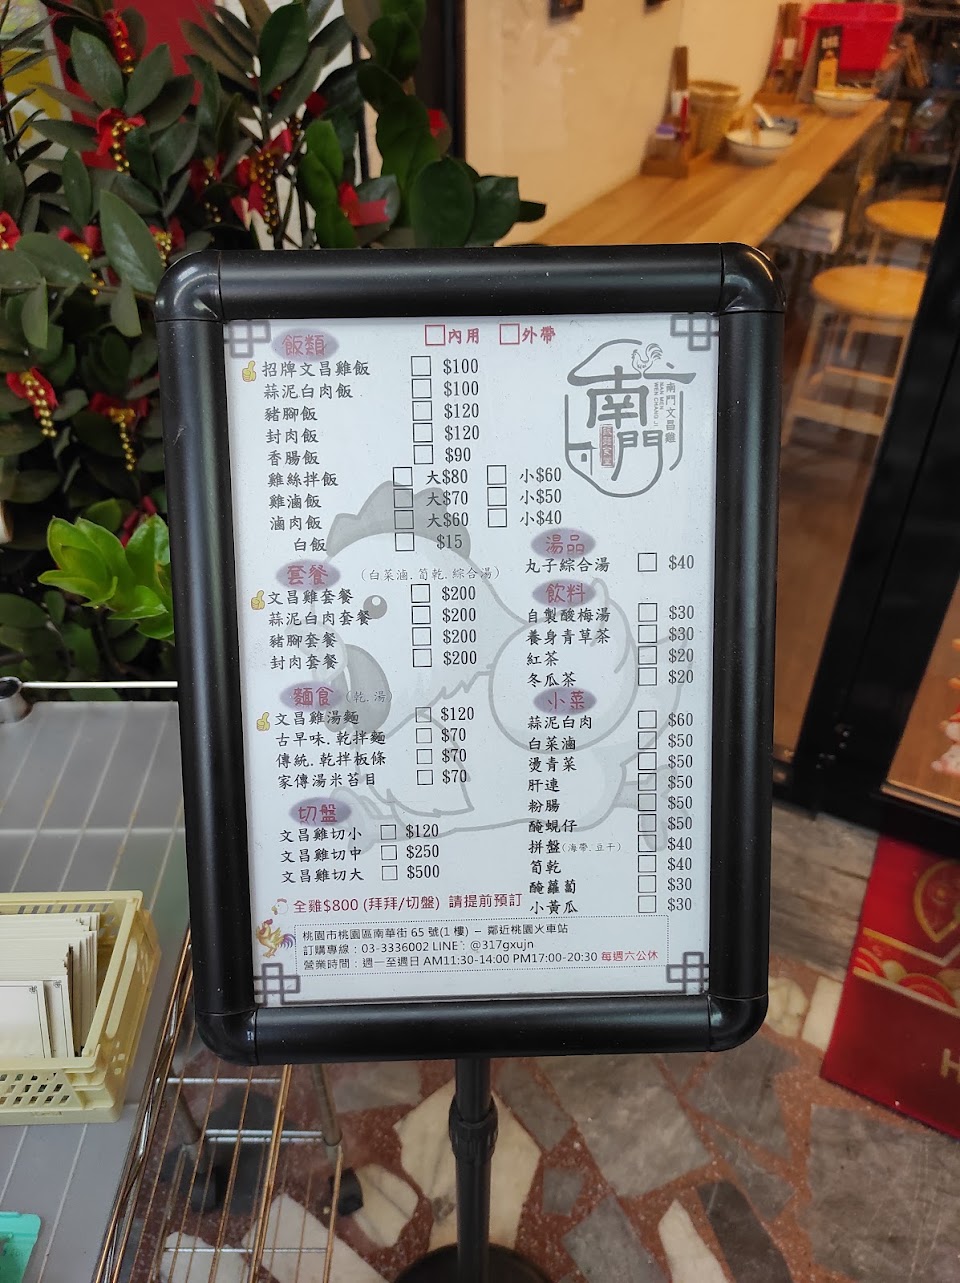 □內用 □外帶
飯類
招牌文昌雞飯 □ $100
蒜泥白肉飯 □ $100
豬腳飯 □ $120
封肉飯 □ $120
香腸飯 □ $90
雞絲拌飯 □ 大$80 □ 小$60
雞滷飯 □ 大$70 □ 小$50
滷肉飯 □ 大$60 □ 小$40
白飯 □ $15
套餐 (白菜滷.筍乾.綜合湯)
文昌雞套餐 □ $200
蒜泥白肉套餐 □ $200
豬腳套餐 □ $200
封肉套餐 □ $200
麵食 (乾.湯)
文昌雞湯麵 □ $120
古早味.乾拌麵 □ $70
傳統.乾拌板條 □ $70
家傳湯米苔目 □ $70
切盤
文昌雞切小 □ $120
文昌雞切中 □ $250
文昌雞切大 □ $500
南門
南門文昌雞
NAN MEN
WEN CHANG JI
湯品
丸子綜合湯 □ $40
飲料
自製酸梅湯 □ $30
養身青草茶 □ $30
紅茶 □ $20
冬瓜茶 □ $20
小菜
蒜泥白肉 □ $60
白菜滷 □ $50
燙青菜 □ $50
肝連 □ $50
粉腸 □ $50
醃蜆仔 □ $50
拼盤(海帶.豆干) □ $40
筍乾 □ $40
醃蘿蔔 □ $30
小黃瓜 □ $30
全雞$800 (拜拜/切盤) 請提前預訂
桃園市桃園區南華街 65 號(1 樓) – 鄰近桃園火車站
訂購專線：03-3336002 LINE：@317gxujn
營業時間：週一至週日 AM11:30-14:00 PM17:00-20:30 每週六公休